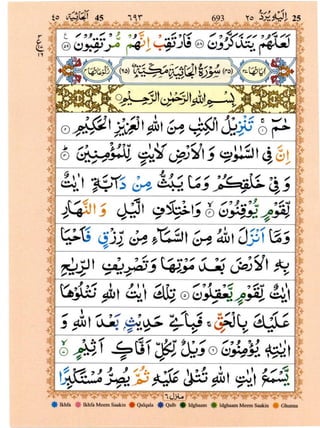 25 اِلَيْهِ يُرَدُّ ٢٥ 693 ٦٩٣ 45 اَلْجَاثِيَة ٤٥
لَعَلَّهُمْ يَتَذَكَّرُوْنَ ۝٥٨ فَارْتَقِبْ اِنَّهُمْ مُّرْتَقِبُوْنَ ۝٥٩
سُوْرَةُ الْجَاثِيَةِ مَكِّيَّةٌ
بِسْمِ اللهِ الرَّحْمٰنِ الرَّحِيْمِ
حٰمٓ ۝١ تَنْزِيْلُ الْكِتٰبِ مِنَ اللهِ الْعَزِيْزِ الْحَكِيْمِ ۝٢
اِنَّ فِى السَّمٰوٰتِ وَ الْاَرْضِ لَاٰيٰتٍ لِّلْمُؤْمِنِيْنَ ۝٣
وَ فِىْ خَلْقِكُمْ وَ مَا يَبُثُّ مِنْ دَآبَّةٍ اٰيٰتٌ
لِّقَوْمٍ يُّوْقِنُوْنَ ۝٤ وَاخْتِلَافِ الَّيْلِ وَ النَّهَارِ
وَ مَآ اَنْزَلَ اللهُ مِنَ السَّمَآءِ مِنْ رِّزْقٍ فَاَحْيَا
بِهِ الْاَرْضَ بَعْدَ مَوْتِهَا وَ تَصْرِيْفِ الرِّيٰحِ
اٰيٰتٌ لِّقَوْمٍ يَّعْقِلُوْنَ ۝٥ تِلْكَ اٰيٰتُ اللهِ نَتْلُوْهَا
عَلَيْكَ بِالْحَقِّ ۚ فَبِاَىِّ حَدِيْثٍۭ بَعْدَ اللهِ وَ
اٰيٰتِهٖ يُؤْمِنُوْنَ ۝٦ وَيْلٌ لِّكُلِّ اَفَّاكٍ اَثِيْمٍ ۝٧
يَّسْمَعُ اٰيٰتِ اللهِ تُتْلٰى عَلَيْهِ ثُمَّ يُصِرُّ مُسْتَكْبِرًا
منزل ٦
Ikhfa Ikhfa Meem Saakin Qalqala Qalb Idghaam Idghaam Meem Saakin Ghunna